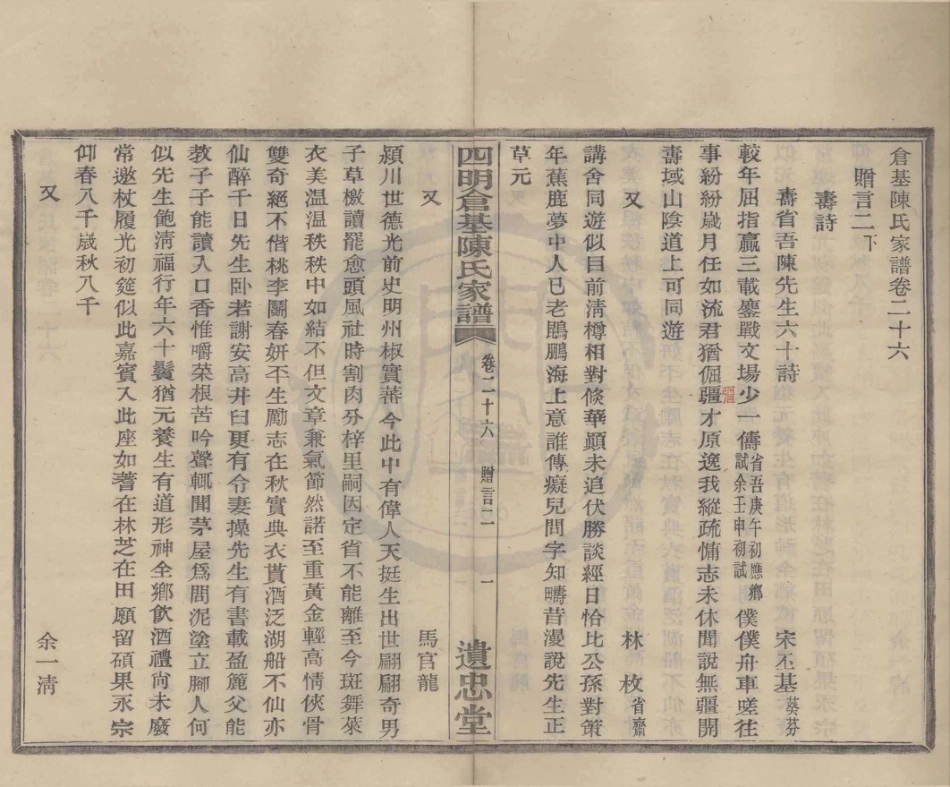 倉基陳氏家譜卷二十六
贈言二下
壽詩
壽省吾陳先生六十詩　宋丕基葵芬
較年屈指贏三載鏖戰文場少一儔省吾庚午初應鄉試余壬申初試僕僕舟車嗟往
事紛紛歲月任如流君猶倔彊才原逸我縱疏慵志未休聞說無疆開
壽域山陰道上可同遊
又　林枚省齋
講舍同遊似目前淸樽相對倐華顚未追伏勝談經日恰比公孫對策
年蕉鹿夢中人已老鵾鵬海上意誰傳癡兒問字知疇昔漫說先生正
草元
四明倉基陳氏家譜　卷二十六　贈言二　一　遺忠堂
又　馬官龍
潁川世德光前史明州椒實蕃今此中有偉人天挺生出世翩翩奇男
子草檄讀罷愈頭風社時割肉分梓里嗣因定省不能離至今斑舞萊
衣美温温秩秩中如結不但文章兼氣節然諾至重黃金輕高情俠骨
雙奇絕不偕桃李鬬春妍平生勵志在秋實典衣貰酒泛湖船不仙亦
仙醉千日先生臥若謝安高井臼更有令妻操先生有書載盈簏父能
敎子子能讀入口香惟嚼菜根苦吟聲輒聞茅屋爲問泥塗立腳人何
似先生飽淸福行年六十鬢猶元養生有道形神全鄉飲酒禮尙未廢
常邀杖履光初筵似此嘉賓入此座如蓍在林芝在田願留碩果永宗
仰春八千歲秋八千
又　余一淸